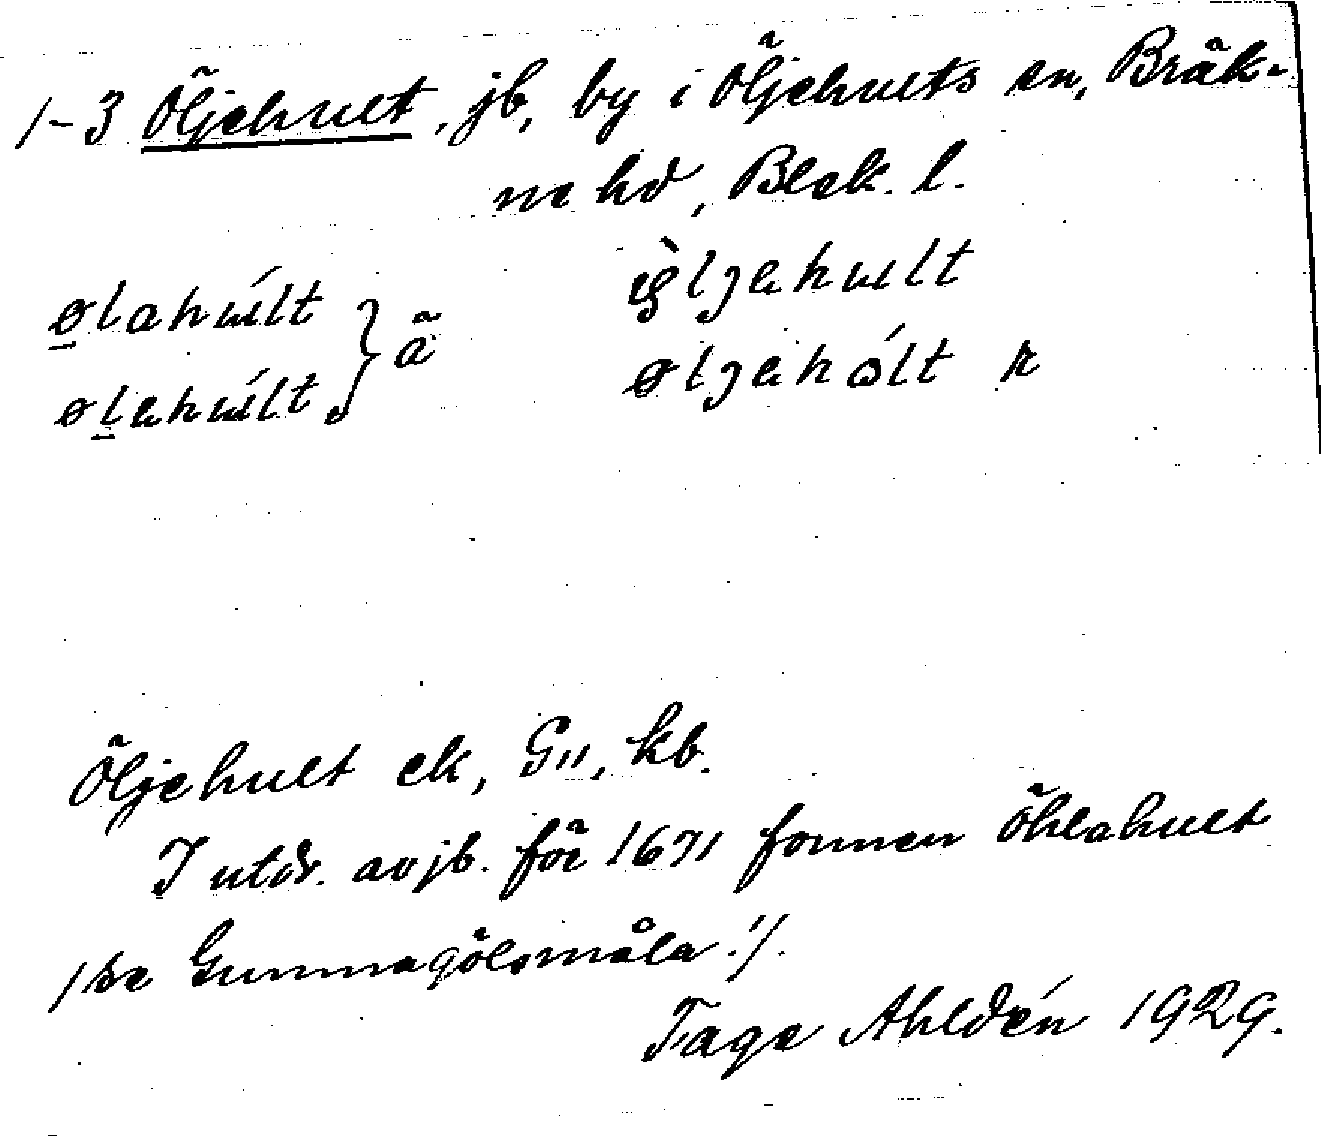 1-3 Öljehult, jb, by i Öljehults sn, Bräk-
ne hd, Blek. l.
ølahúlt } ä ø̀ljehult
ølehúlt øljehólt r
Öljehult ek, G11, kb.
I utdr. av jb. för 1671 formen Öhlahult
/se Gunnagölsmåla!/.
Tage Ahldén 1929.